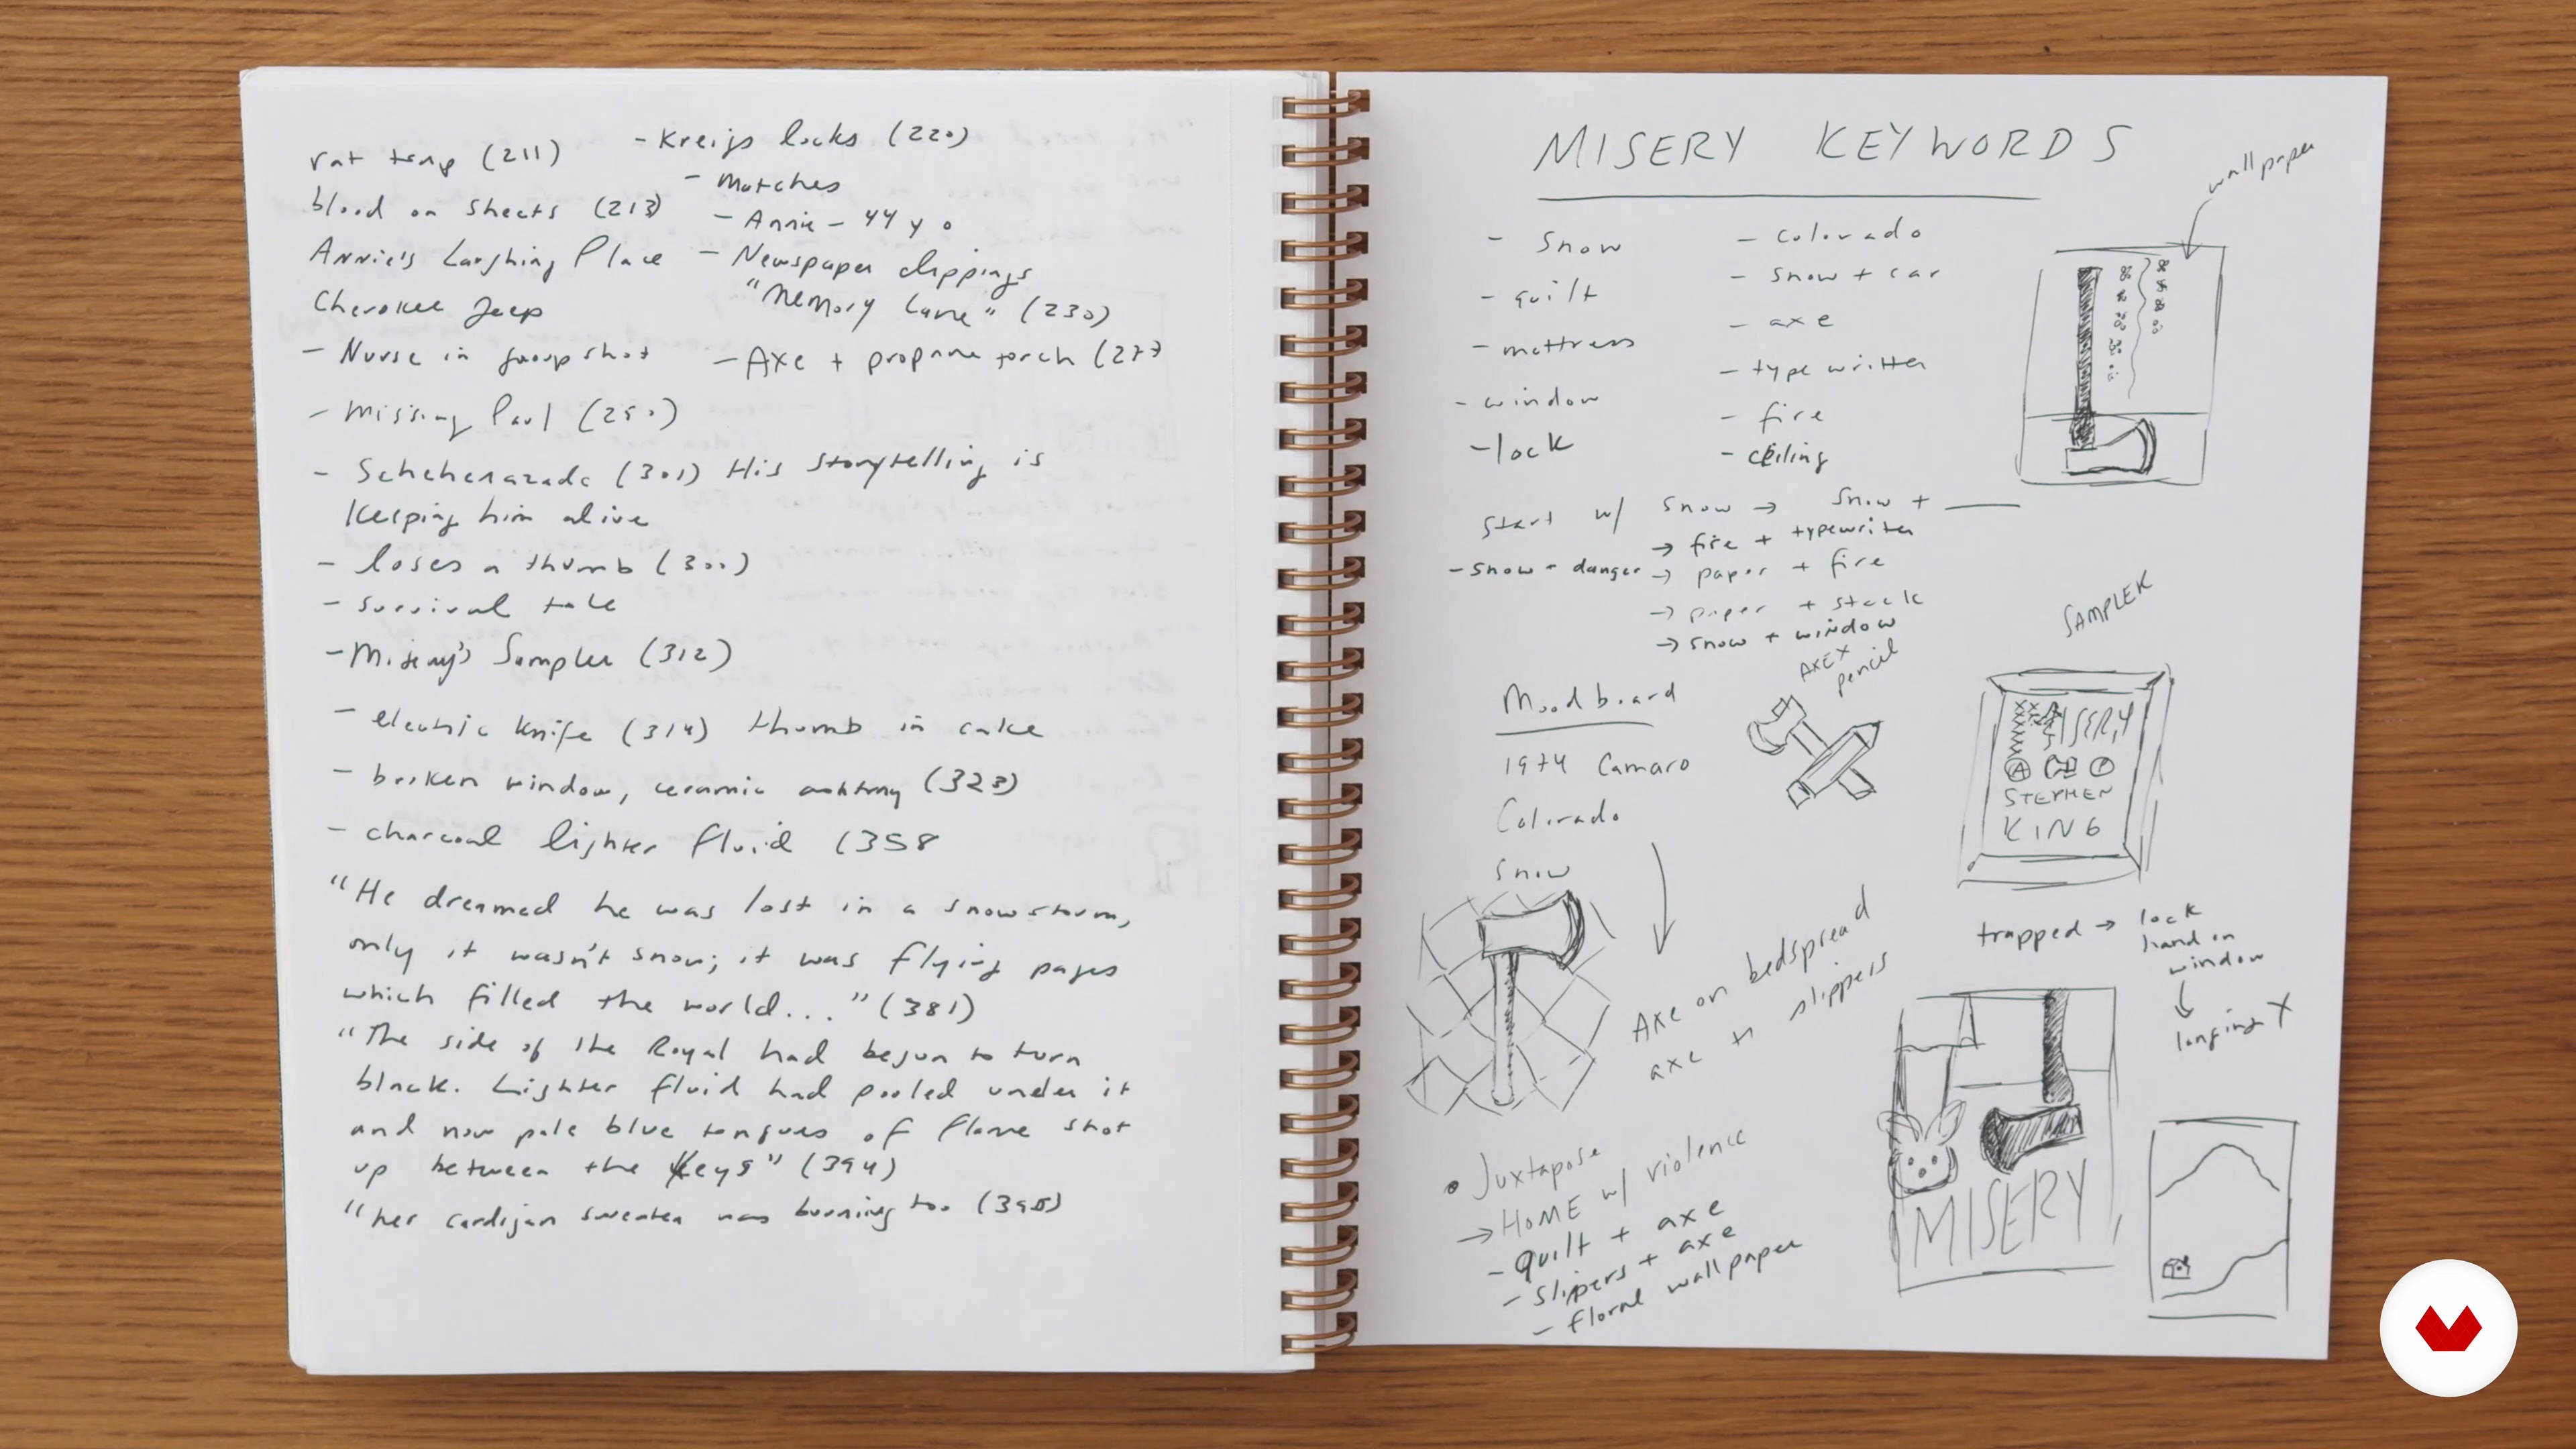 rat trap (211)
blood on sheets (213)
Annie's Laughing Place
Cherokee Jeep
- Nurse in group shot
- Missing Paul (250)
- Kreigs locks (220)
- Matches
- Annie - 44 y o
- Newspaper clippings
"Memory Lane" (230)
- Axe + propane torch (277
- Scheherazade (301) His storytelling is
keeping him alive
- loses a thumb (300)
- survival tale
- Misery's Sampler (312)
- electric knife (314) thumb in cake
- broken window, ceramic ashtray (323)
- charcoal lighter fluid (358
"He dreamed he was lost in a snowstorm,
only it wasn't snow; it was flying pages
which filled the world..." (381)
"The side of the Royal had begun to turn
black. Lighter fluid had pooled under it
and now pale blue tongues of flame shot
up between the keys" (394)
"her cardigan sweater was burning too (395)
MISERY KEYWORDS
- snow
- quilt
- mattress
- window
- lock
- colorado
- snow + car
- axe
- type writter
- fire
- ceiling
wallpaper
start w/ snow → snow + ___
→ fire + typewriter
- snow + danger → paper + fire
→ paper + stack
→ snow + window
AXE X
pencil
SAMPLER
MISERY
A
STEPHEN
KING
Moodboard
1974 Camaro
Colorado
Snow
Axe on bedspread
axe n slippers
trapped → lock
hand on
window
longing X
MISERY
• Juxtapose
→ HOME w/ violence
- quilt + axe
- slipers + axe
- floral wallpaper